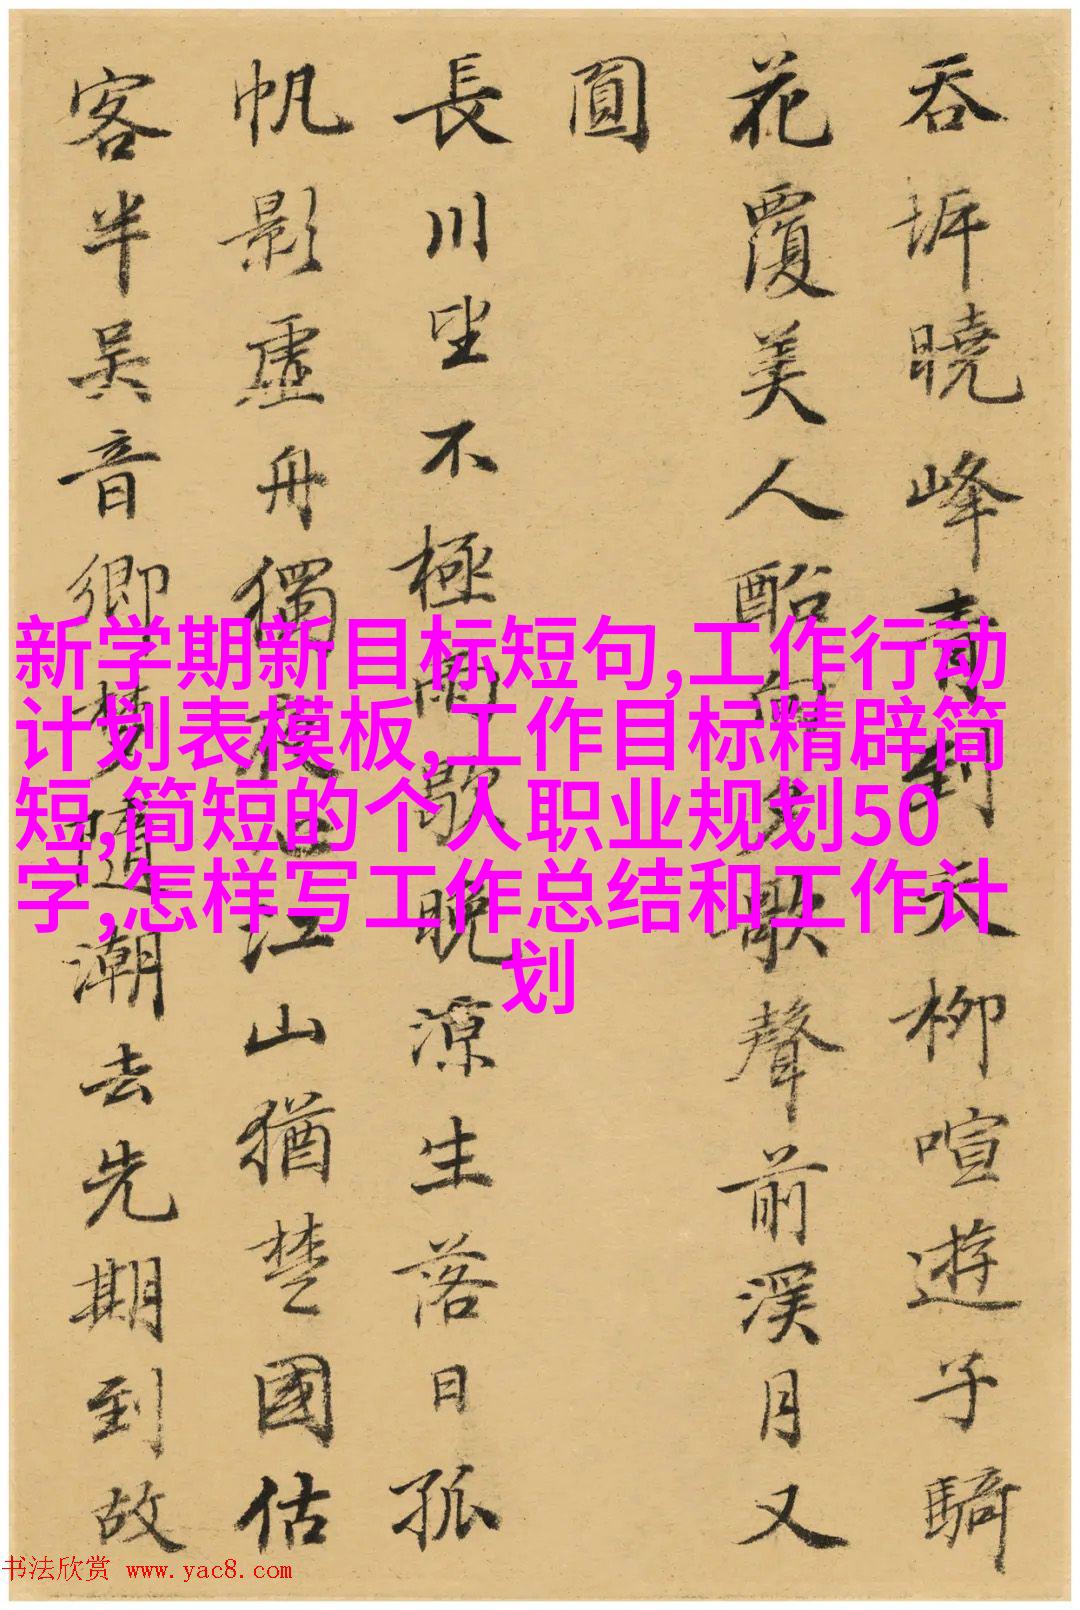 吞坼曉峰青到天柳喧遊子騎
花覆美人夕歌聲前溪月又
圓
長川坐不極歌晚涼生落日孤
帆影虛舟獨夜心江山猶楚國估
客半吳音鄉夢隨潮去先期到故
新学期新目标短句,工作行动
计划表模板,工作目标精辟简
短,简短的个人职业规划50
字,怎样写工作总结和工作计
划
书法欣赏 www.yac8.com